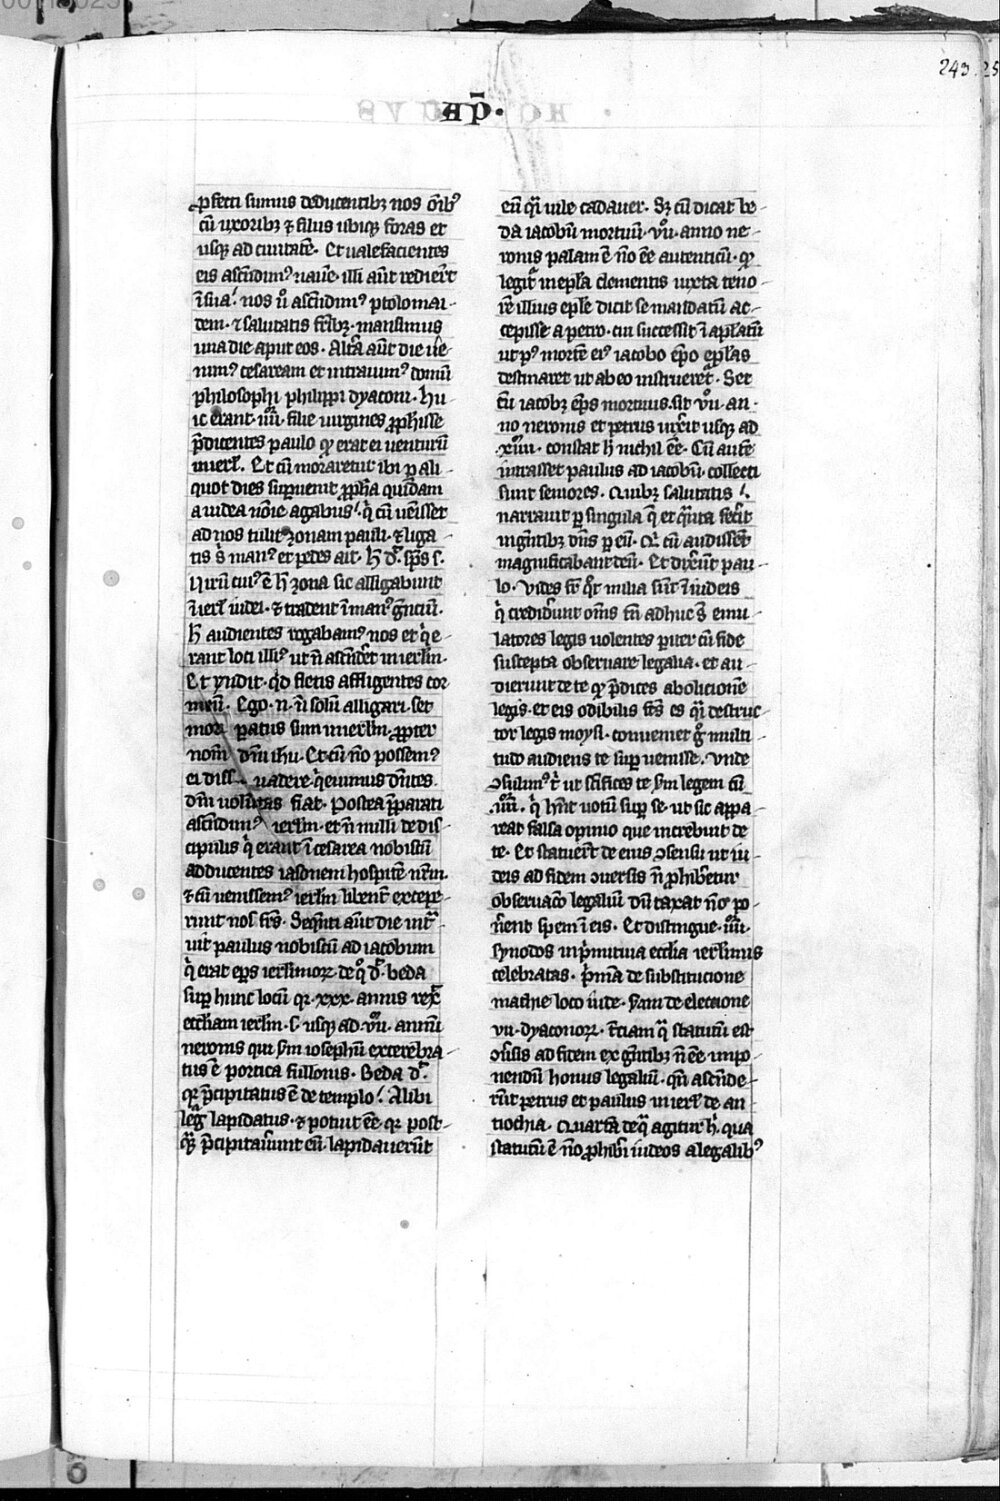 243. 25
AP̄.
ꝓfecti sumus deducentibꝫ nos om̄ibꝰ
cū uxoribꝫ ⁊ filiis usqꝫ foras et
usqꝫ ad ciuitatē. Et ualefacientes
eis ascendimꝰ nauē. illi aūt redierūt
ī sua. nos ū ascendimꝰ ptolomai-
dem. ⁊ salutatis fr̄ibꝫ. mansimus
una die aput eos. Alt̄a aūt die ue-
nimꝰ cesaream et intrauimꝰ domū
philosophi philippi dyaconi. hu-
ic erant .iiii. filie uirgines ꝓph̄isse
p̄dicentes paulo qꝫ erat ei uenturū
in ierl̄. Et cū moraretur ibi ꝑ ali-
quot dies suꝑuenit ꝓph̄a quidam
a iudea nōīe agabus. q̄ cū uenisset
ad nos tulit zonam pauli. ⁊ liga-
tis s̄ manꝰ et pedes ait. h̄ d̄t sp̄s s.
Uirū cuiꝰ ē h̄ zona sic alligabunt
ī ierl̄ iudei. ⁊ tradent ī manꝰ gēnciū.
h̄ audientes rogabamꝰ nos et q̄ e-
rant loci illiꝰ ut ñ ascēdēt in ierl̄m.
Et r̄ndit. q̄d fletis affligentes cor
meū. Ego .n. ñ solū alligari. set
mori paratus sum in ierl̄m. ꝓpter
nom̄ dn̄i ih̄u. Et cū nō possemꝰ
ei diss uadere. q̄euimus dn̄tes.
dn̄i uolūtas fiat. Postea p̄parati
ascendimꝰ ierl̄m. et ñ nulli de dis-
cipulis q̄ erant ī cesarea nobiscū
adducentes iasonem hospitē nr̄m.
⁊ cū uenissemꝰ ierl̄m libent̄ excepe-
runt nos fr̄s. Seq̄nti aūt die int̄-
uit paulus nobiscū ad iacobum
q̄ erat ep̄s ierl̄imoꝝ. de q̄ d̄t. beda
suꝑ hunc locū qꝛ .xxx. annis rex̄
eccl̄iam ierl̄m .s. usqꝫ ad .vii. annū
neronis qui s̄m iosephū excerebra-
tus ē portica fullonis. Beda d̄t.
qꝛ p̄cipitatus ē de templo. Alibi
leḡ lapidatus. ⁊ potuit eē qꝛ post-
q̄ꝫ p̄cipitauerunt eū lapidauerūt
eū q̄i uile cadauer. Sꝫ cū dicat be-
da iacobū mortuū .vii. anno ne-
ronis palam ē nō eē autenticū. qꝫ
legit̄ in ep̄la clementis iuxta teno-
rē illius ep̄le dicit se mandatū ac-
cepisse a petro. cui successit ī ap̄latū
ut pꝰ mortē eiꝰ iacobo ep̄o ep̄las
destinaret ut ab eo instrueret̄. Set
cū iacobꝫ ep̄s mortuus sit .vii. an-
no neronis et petrus uixit usqꝫ ad
.xiiii. constat h̄ nichil eē. Cū autē
intrasset paulus ad iacobū. collecti
sunt seniores. Quibꝫ salutatis
narrauit ꝑ singula q̄ et q̄nta fec̄it
in gēntibꝫ dn̄s ꝑ eū. Qꝛ cū audissēt
magnificabant deū. Et dixēunt pau-
lo. Uides fr̄ q̄t milia sunt ī iudeis
q̄ crediderunt om̄s tn̄ adhuc s̄ emu-
latores legis uolentes pariter cū fide
suscepta obseruare legalia. et au-
dierunt de te qꝫ p̄dices abolicionē
legis. et eis odibilis fc̄s es q̄i destruc-
tor legis moysi. conueniet g̊ multi
tudo audiens te suꝑuenisse. Unde
ꝯsulimꝰ t̄ ut sc̄ifices te s̄m legem cū
.iiii. q̄ hn̄t uotū suꝑ se. ut sic appa-
reat falsa opinio que increbuit de
te. Et statuerūt de eius ꝯsensu ut iu-
deis ad fidem ꝯuersis ñ ꝓhiberetur
obseruacio legaliū dū taxat nō po-
nerent spem ī eis. Et distingue .iiii.
synodos in p̄mitiua ecclia ierl̄imis
celebratas. P̄mā de substitucione
mathie loco iude. Scd̄am de electione
vii. dyaconoꝝ. T̄ciam q̄ statutū est
ꝯuersis ad fidem ex gēntibꝫ ñ eē impo-
nendū honus legaliū. qn̄ ascende-
rūt petrus et paulus in ierl̄ de an-
tiochia. Quarta de q̄ agitur h̄. qua
statutū ē nō ꝓhiberi iudeos a legalibꝰ